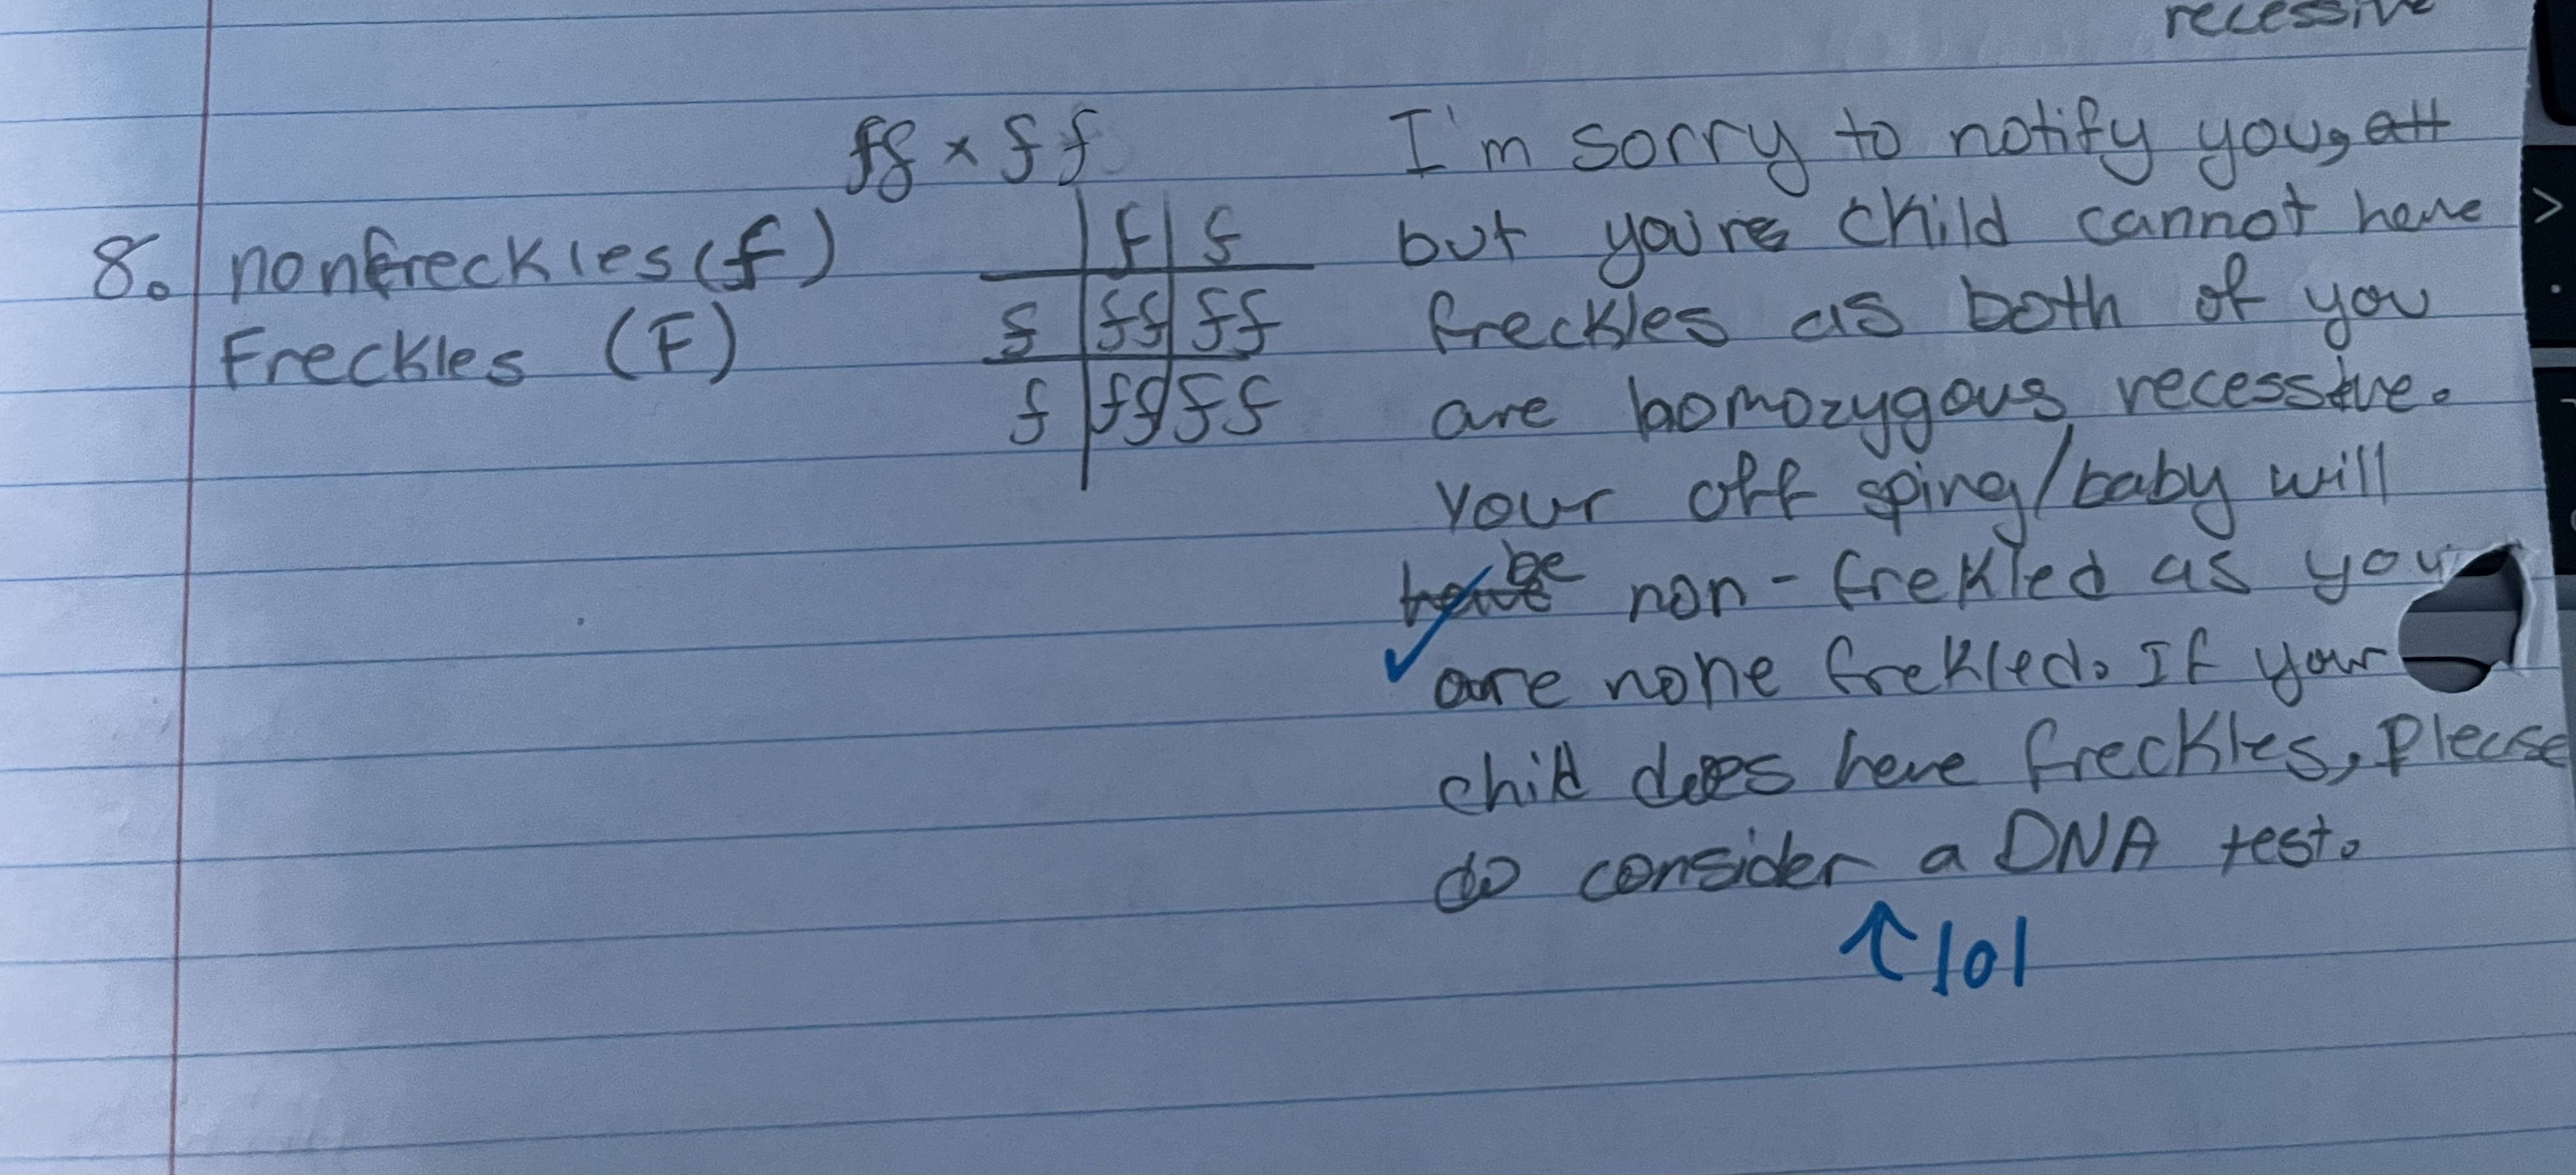 recessive
ff x ff
8. nonfreckles (f)
Freckles (F)
f f
f ff ff
f ff ff
I'm sorry to notify you, att
but you're child cannot have
freckles as both of you
are homozygous recessive.
your off sping/baby will
have be non-frekled as you
are none frekled. If your
child does have freckles, please
do consider a DNA test.
↑ lol